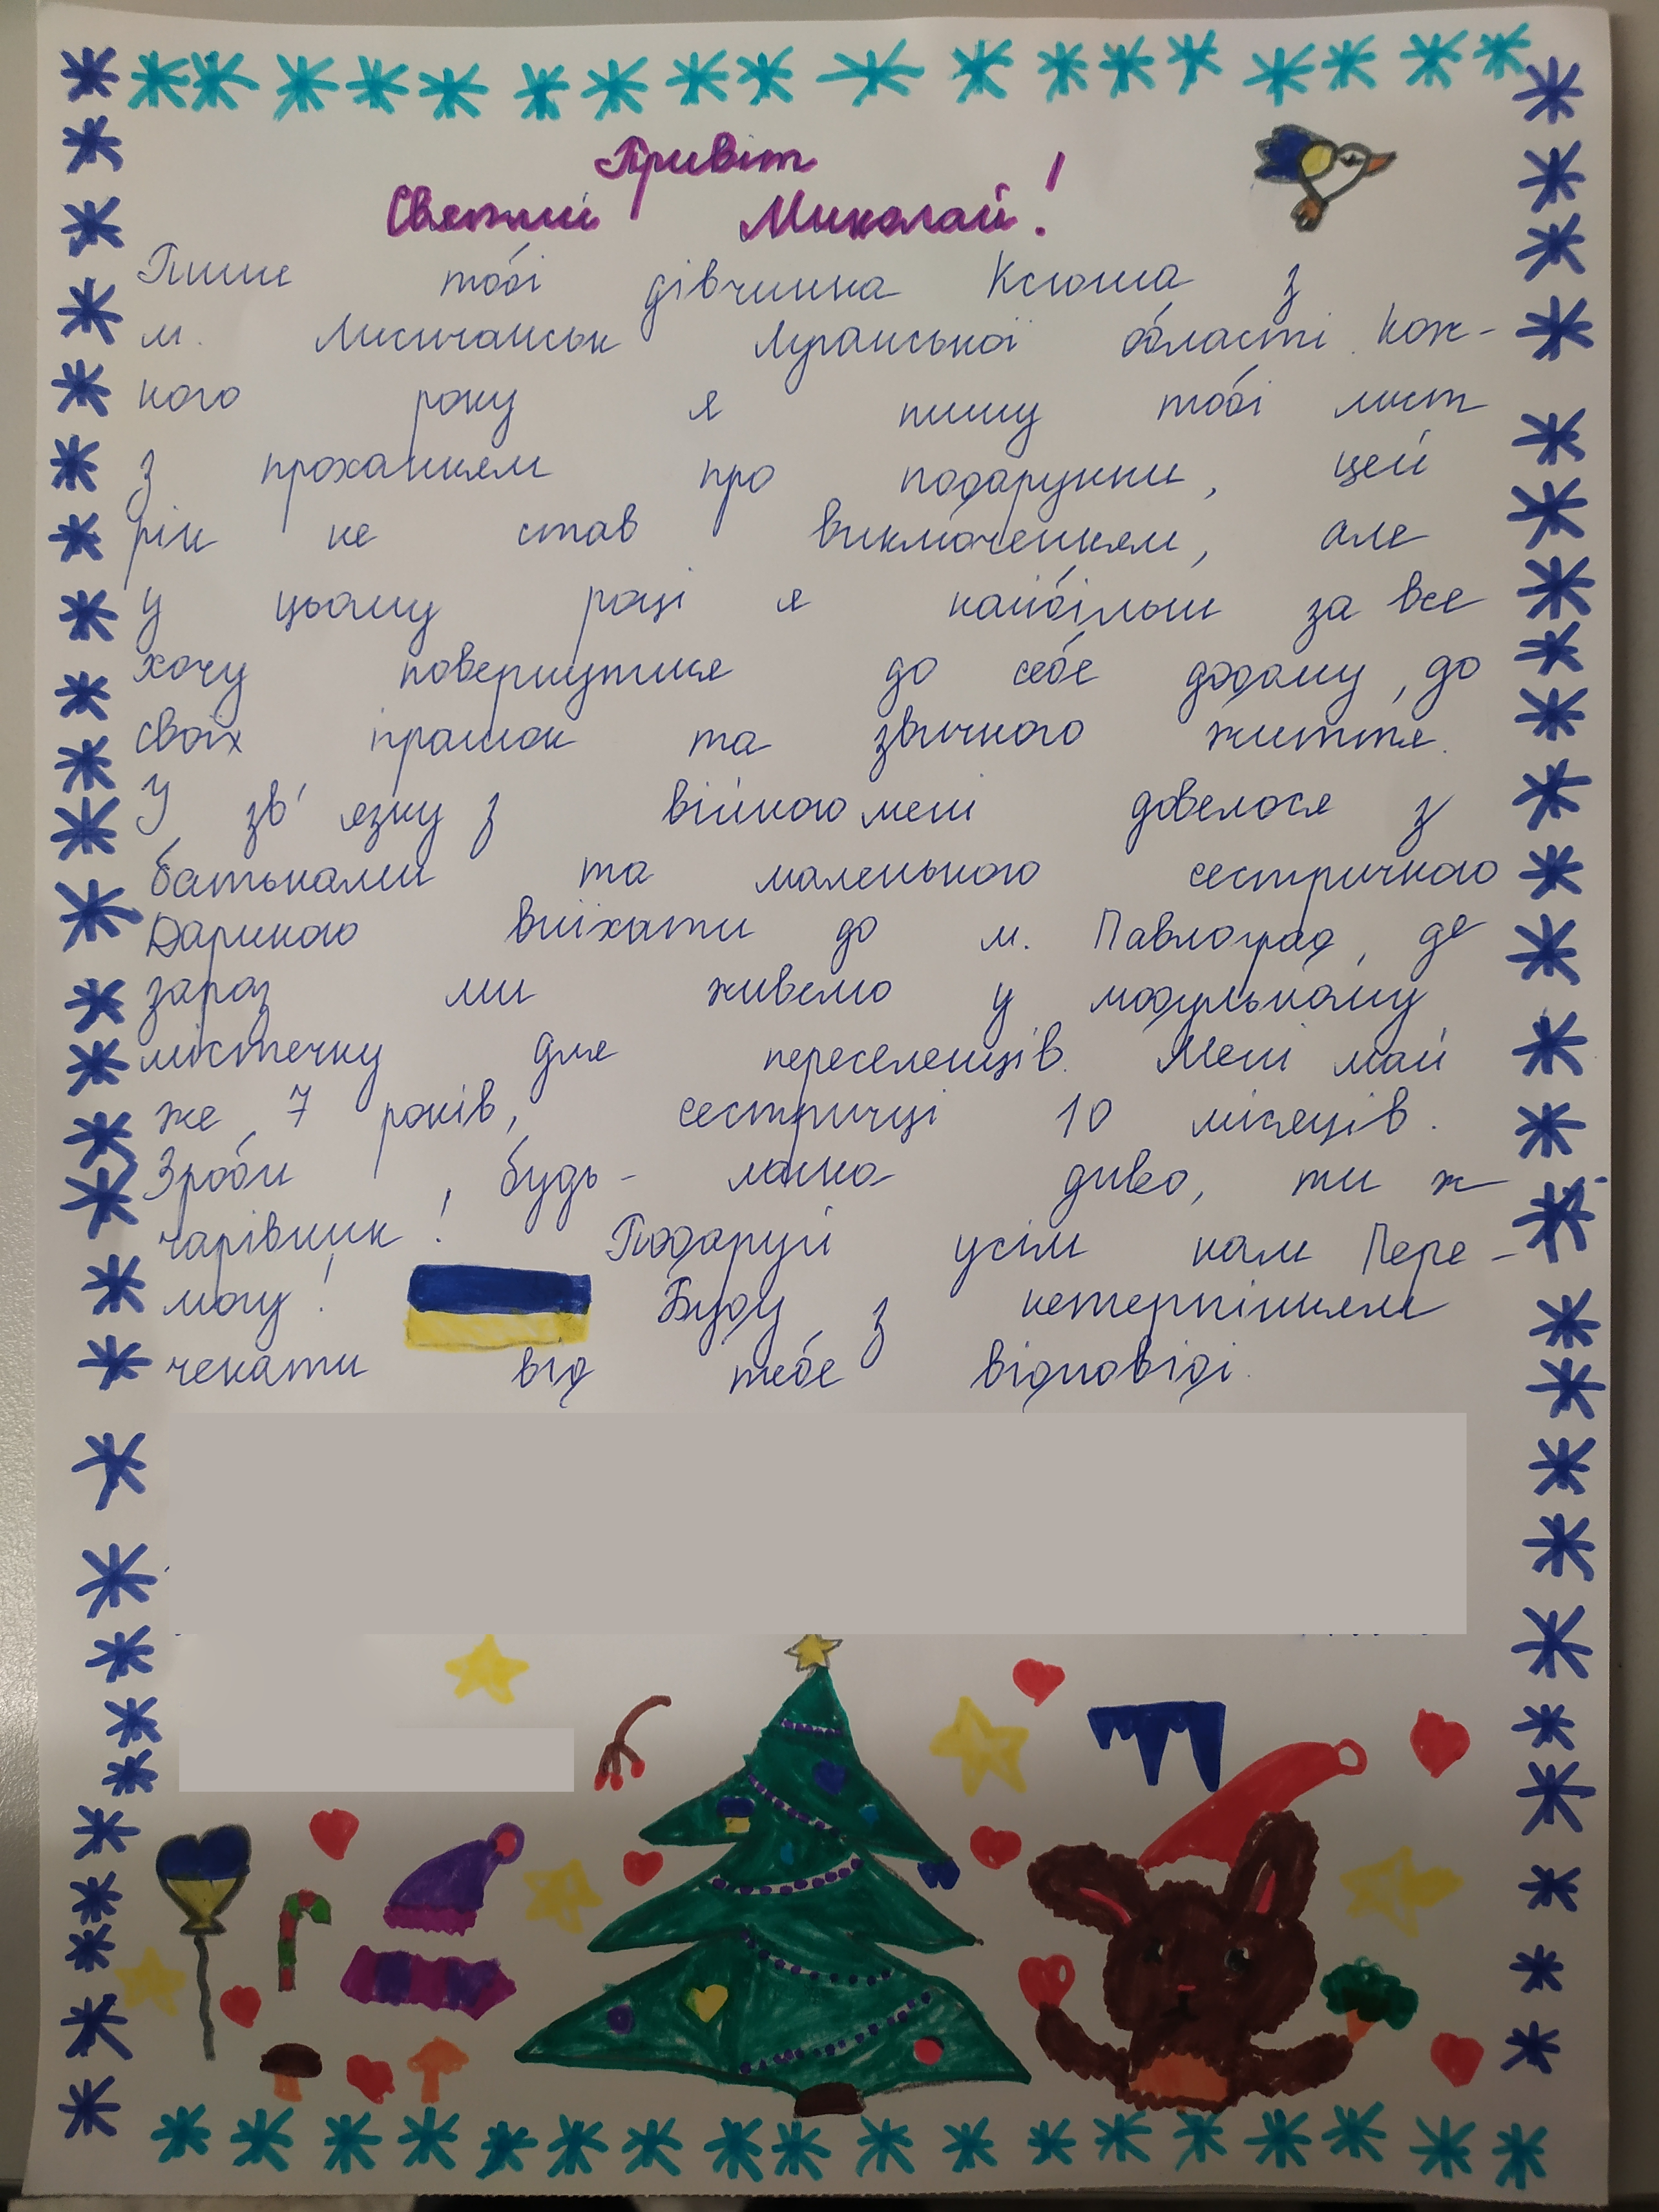 Привіт
Святий Миколай!
Пише тобі дівчинка Ксюша з
м. Лисичанськ Луганської області. Кож-
ного року я пишу тобі лист
з проханням про подарунки, цей
рік не став виключенням, але
у цьому році я найбільш за все
хочу повернутися до себе додому, до
своїх іграшок та звичного життя.
У зв'язку з війною мені довелося з
батьками та маленькою сестричкою
Дариною виїхати до м. Павлоград, де
зараз ми живемо у модульному
містечку для переселенців. Мені май
же 7 років, сестричці 10 місяців.
Зроби, будь-ласка диво, ти ж
чарівник! Подаруй усім нам Пере-
могу! Буду з нетерпінням
чекати від тебе відповіді.